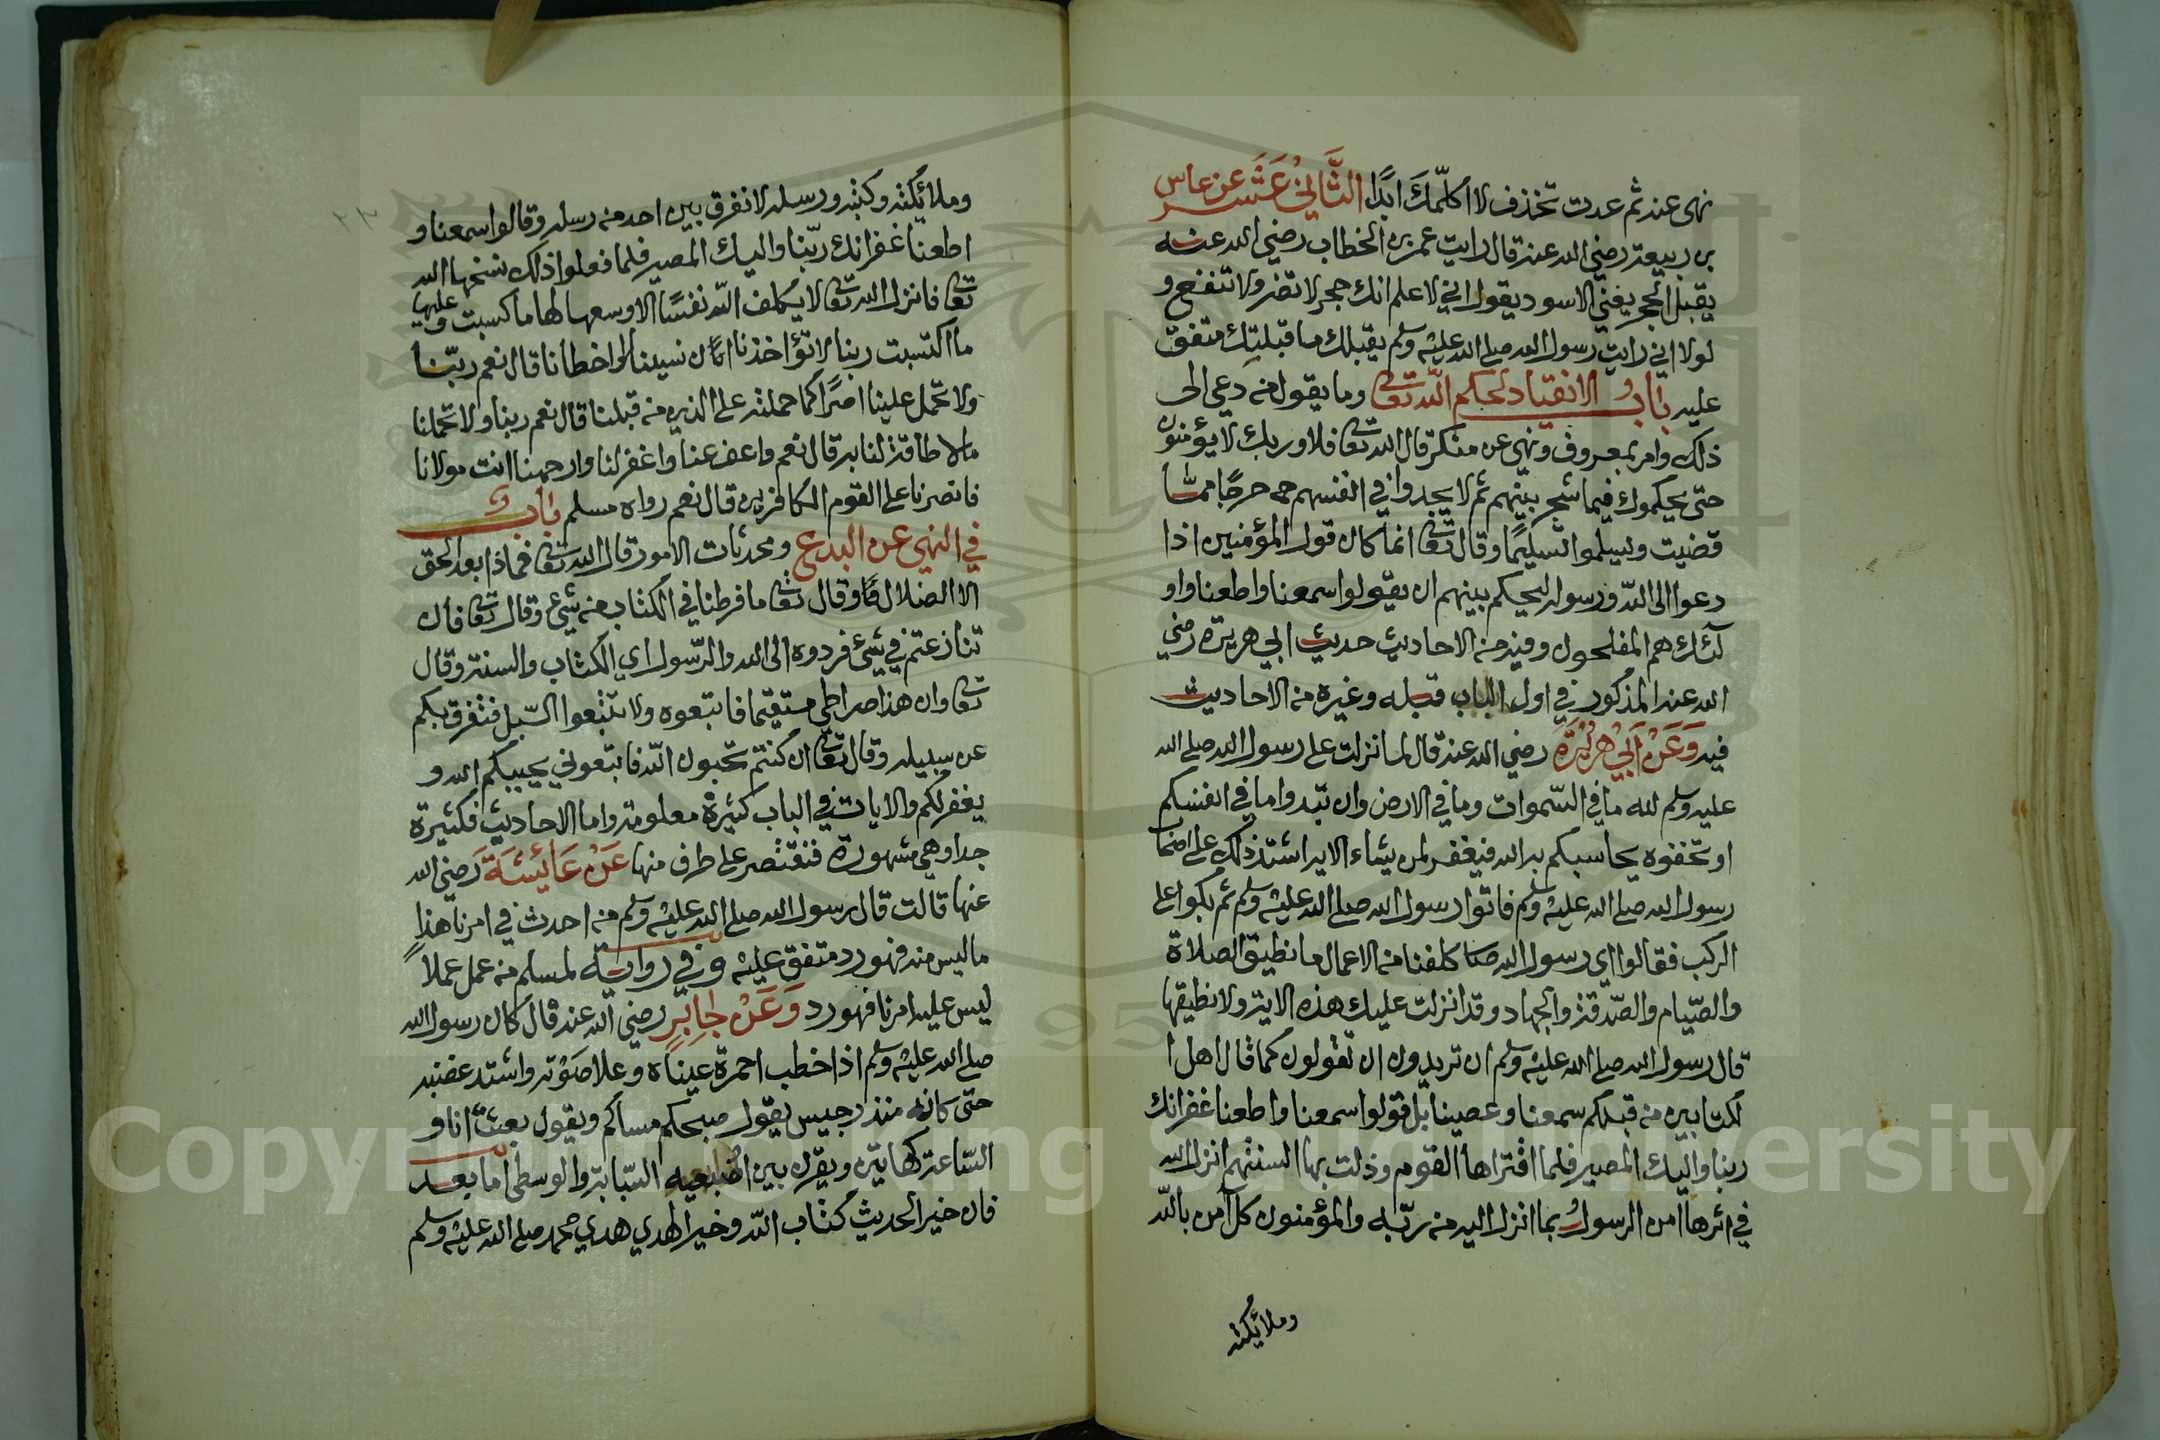 نهى عنه ثم عدت تخذف لا اكلّمك ابدًا الثَّانِي عَشَر عن عابس
بن ربيعة رضي الله عنه قال رايت عمر بن الخطاب رضي الله عنه
يقبل الحجر يعني الاسود يقول اني لاعلم انك حجر لا تضر ولا تنفع و
لولا اني رايت رسول الله صلى الله عليه وسلم يقبلك ما قبلتك متفق
عليه باب الانقياد لحكم الله تعالى وما يقول من دعي الى
ذلك وامر بمعروف ونهي عن منكر قال الله تعالى فلا وربك لا يؤمنون
حتى يحكموك فيما شجر بينهم ثم لا يجدوا في انفسهم حرجًا مما
قضيت ويسلموا تسليمًا وقال تعالى انما كان قول المؤمنين اذا
دعوا الى الله ورسوله ليحكم بينهم ان يقولوا سمعنا واطعنا واو
لئك هم المفلحون وفيه من الاحاديث حديث ابي هريرة رضي
الله عنه المذكور في اول الباب قبله وغيره من الاحاديث
فيه وَعَنْ اَبِيْ هُرَيْرَةَ رضي الله عنه قال لما نزلت على رسول الله صلى الله
عليه وسلم لله ما في السّموات وما في الارض وان تبدوا ما في انفسكم
او تخفوه يحاسبكم به الله فيغفر لمن يشاء الاية اشتد ذلك على اصحاب
رسول الله صلى الله عليه وسلم فاتوا رسول الله صلى الله عليه وسلم ثم بركوا على
الركب فقالوا اي رسول الله كلفنا من الاعمال ما نطيق الصلاة
والصّيام والصّدقة والجهاد وقد انزلت عليك هذه الاية ولا نطيقها
قال رسول الله صلى الله عليه وسلم ان تريدون ان تقولون كما قال اهل ا
لكتابين من قبلكم سمعنا وعصينا بل قولوا سمعنا واطعنا غفرانك
ربنا واليك المصير فلما اقتراها القوم وذلت بها السنتهم انزل الله
في اثرها امن الرسول بما انزل اليه من ربّه والمؤمنون كل آمن بالله
وملائكته
وملائكته وكتبه ورسله لا نفرق بين احد من رسله وقالوا سمعنا و
اطعنا غفرانك ربّنا واليك المصير فلما فعلوا ذلك نسخها الله
تعالى فانزل الله تعالى لا يكلف الله نفسًا الا وسعها لها ما كسبت وعليها
ما اكتسبت ربنا لا تؤاخذنا ان نسينا او اخطأنا قال نعم ربّنا
ولا تحمل علينا اصرًا كما حملته على الذين من قبلنا قال نعم ربنا ولا تحملنا
مالا طاقة لنا به قال نعم واعف عنا واغفر لنا وارحمنا انت مولانا
فانصرنا على القوم الكافرين قال نعم رواه مسلم باب
في النهي عن البدع ومحدثات الامور قال الله تعالى فماذا بعد الحق
الا الضلال وقال تعالى ما فرطنا في الكتاب من شيء وقال تعالى فان
تنازعتم في شيء فردوه الى الله والرّسول اي الكتاب والسنة وقال
تعالى وان هذا صراطي مستقيما فاتبعوه ولا تتبعوا السّبل فتفرق بكم
عن سبيله وقال تعالى ان كنتم تحبون الله فاتبعوني يحببكم الله و
يغفر لكم والايات في الباب كثيرة معلومة واما الاحاديث فكثيرة
جدا وهي مشهورة فنقتصر على طرف منها عَنْ عَائِشَةَ رضي الله
عنها قالت قال رسول الله صلى الله عليه وسلم من احدث في امرنا هذا
ما ليس منه فهو رد متفق عليه وفي رواية لمسلم من عمل عملًا
ليس عليه امرنا فهو رد وَعَنْ جَابِرٍ رضي الله عنه قال كان رسول الله
صلى الله عليه وسلم اذا خطب احمرة عيناه وعلا صوته واشتد غضبه
حتى كانه منذر جيس يقول صبحكم مساكم ويقول بعثت انا و
السّاعة كهاتين ويقرن بين السّبابة والوسطى اما بعد
فان خير الحديث كتاب الله وخير الهدي هدي محمد صلى الله عليه وسلم
Copyright © King Saud University
1957